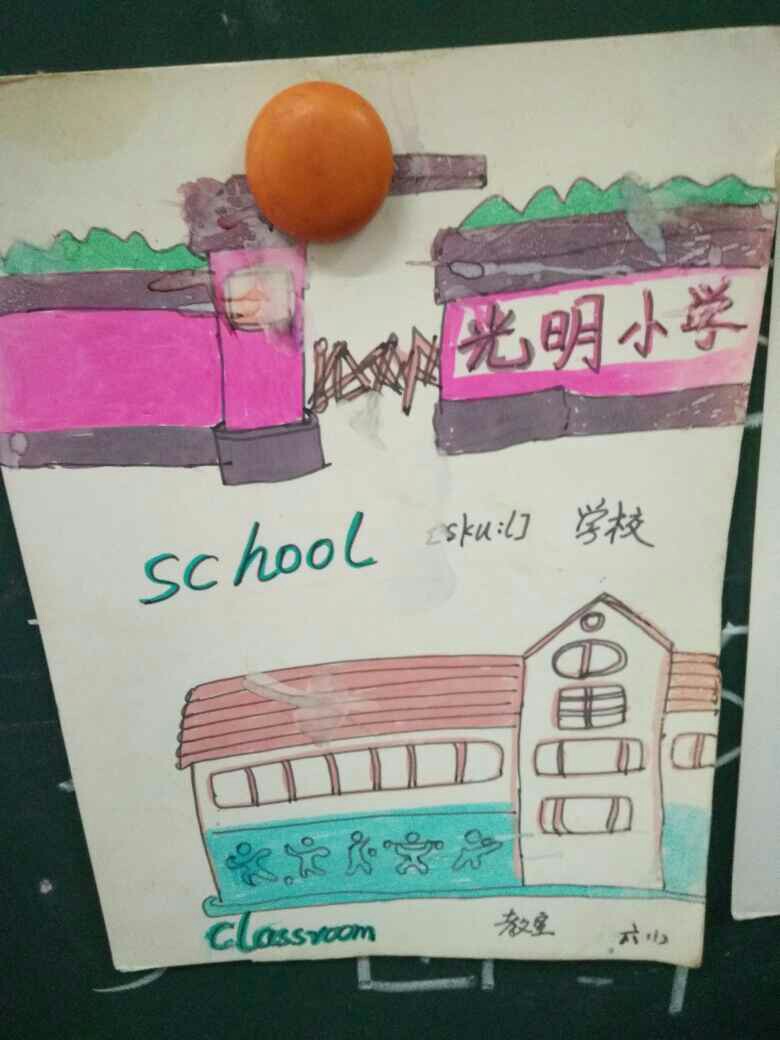 光明小学
school [sku:l] 学校
classroom 教室